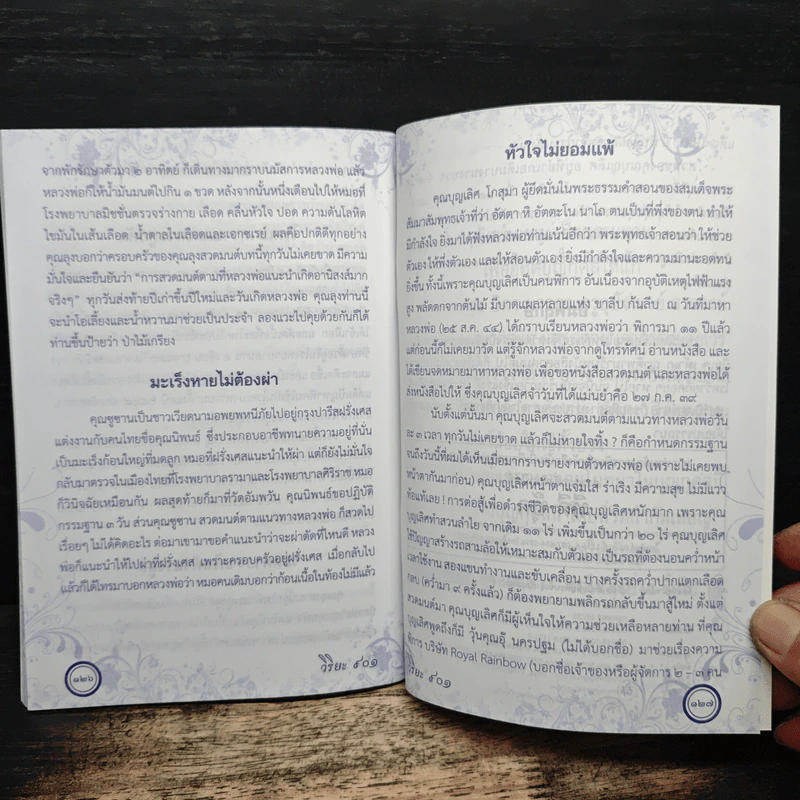 จากพักรักษาตัวมา ๒ อาทิตย์ ก็เดินทางมากราบนมัสการหลวงพ่อ แล้ว
หลวงพ่อก็ให้น้ำมันมนต์ไปกิน ๑ ขวด หลังจากนั้นหนึ่งเดือนไปให้หมอที่
โรงพยาบาลมิชชั่นตรวจร่างกาย เลือด คลื่นหัวใจ ปอด ความดันโลหิต
ไขมันในเส้นเลือด น้ำตาลในเลือดและเอกซเรย์ ผลคือปกติดีทุกอย่าง
คุณลุงบอกว่าครอบครัวของคุณลุงสวดมนต์บทนี้ทุกวันไม่เคยขาด มีความ
มั่นใจและยืนยันว่า “การสวดมนต์ตามที่หลวงพ่อแนะนำเกิดอานิสงส์มาก
จริงๆ” ทุกวันส่งท้ายปีเก่าขึ้นปีใหม่และวันเกิดหลวงพ่อ คุณลุงท่านนี้
จะนำโอเลี้ยงและน้ำหวานมาช่วยเป็นประจำ ลองแวะไปคุยด้วยกันก็ได้
ท่านขึ้นป้ายว่า ป่าไม้เกรียง
มะเร็งหายไม่ต้องผ่า
คุณซูซานเป็นชาวเวียดนามอพยพหนีภัยไปอยู่กรุงปารีสฝรั่งเศส
แต่งงานกับคนไทยชื่อคุณนิพนธ์ ซึ่งประกอบอาชีพทนายความอยู่ที่นั่น
เป็นมะเร็งก้อนใหญ่ที่มดลูก หมอที่ฝรั่งเศสแนะนำให้ผ่า แต่ก็ยังไม่มั่นใจ
กลับมาตรวจในเมืองไทยที่โรงพยาบาลรามาและโรงพยาบาลศิริราช หมอ
ก็วินิจฉัยเหมือนกัน ผลสุดท้ายก็มาที่วัดอัมพวัน คุณนิพนธ์ขอปฏิบัติ
กรรมฐาน ๓ วัน ส่วนคุณซูซาน สวดมนต์ตามแนวทางหลวงพ่อ ก็สวดไป
เรื่อยๆ ไม่ได้คิดอะไร ต่อมาเขามาขอคำแนะนำว่าจะผ่าตัดที่ไหนดี หลวง
พ่อก็แนะนำให้ไปผ่าที่ฝรั่งเศส เพราะครอบครัวอยู่ฝรั่งเศส เมื่อกลับไป
แล้วก็ได้โทรมาบอกหลวงพ่อว่า หมอคนเดิมบอกว่าก้อนเนื้อในท้องไม่มีแล้ว
วิริยะ ๙๐๑
๑๒๖
หัวใจไม่ยอมแพ้
คุณบุญเลิศ โกสุมา ผู้ยึดมั่นในพระธรรมคำสอนของสมเด็จพระ
สัมมาสัมพุทธเจ้าที่ว่า อัตตา หิ อัตตะโน นาโถ ตนเป็นที่พึ่งของตน ทำให้
มีกำลังใจ ยิ่งมาได้ฟังหลวงพ่อท่านเน้นอีกว่า พระพุทธเจ้าสอนว่า ให้ช่วย
ตัวเอง ให้พึ่งตัวเอง และให้สอนตัวเอง ยิ่งมีกำลังใจและความมานะอดทน
ยิ่งขึ้น ทั้งนี้เพราะคุณบุญเลิศเป็นคนพิการ อันเนื่องจากอุบัติเหตุไฟฟ้าแรง
สูง พลัดตกจากต้นไม้ มีบาดแผลหลายแห่ง ขาลีบ ก้นลีบ ณ วันที่มาหา
หลวงพ่อ (๒๕ ส.ค. ๔๔) ได้กราบเรียนหลวงพ่อว่า พิการมา ๑๑ ปีแล้ว
แต่ก่อนนี้ก็ไม่เคยมาวัด แต่รู้จักหลวงพ่อจากดูโทรทัศน์ อ่านหนังสือ และ
ได้เขียนจดหมายมาหาหลวงพ่อ เพื่อขอหนังสือสวดมนต์ และหลวงพ่อได้
ส่งหนังสือไปให้ ซึ่งคุณบุญเลิศจำวันที่ได้แม่นยำคือ ๒๗ ก.ค. ๓๙
นับตั้งแต่นั้นมา คุณบุญเลิศจะสวดมนต์ตามแนวทางหลวงพ่อวัน
ละ ๓ เวลา ทุกวันไม่เคยขาด แล้วก็ไม่หายใจทิ้ง ? ก็คือกำหนดกรรมฐาน
จนถึงวันนี้ที่ผมได้เห็นเมื่อมากราบรายงานตัวหลวงพ่อ (เพราะไม่เคยพบ
หน้าตากันมาก่อน) คุณบุญเลิศหน้าตาแจ่มใส ร่าเริง มีความสุข ไม่มีแวว
ท้อแท้เลย! การต่อสู้เพื่อดำรงชีวิตของคุณบุญเลิศหนักมาก เพราะคุณ
บุญเลิศทำสวนลำไย จากเดิม ๑๑ ไร่ เพิ่มขึ้นเป็นกว่า ๒๐ ไร่ คุณบุญเลิศ
ใช้ปัญญาสร้างรถสามล้อให้เหมาะสมกับตัวเอง เป็นรถที่ต้องนอนคว่ำหน้า
เวลาใช้งาน สองแขนทำงานและขับเคลื่อน บางครั้งรถคว่ำปากแตกเลือด
กลบ (คว่ำมา ๙ ครั้งแล้ว) ก็ต้องพยายามพลิกรถกลับขึ้นมาสู้ใหม่ ตั้งแต่
สวดมนต์มา คุณบุญเลิศก็มีผู้เห็นใจให้ความช่วยเหลือหลายท่าน ที่คุณ
บุญเลิศพูดถึงก็มี วุ้นคุณอุ๊ นครปฐม (ไม่ได้บอกชื่อ) มาช่วยเรื่องความ
พิการ บริษัท Royal Rainbow (บอกชื่อเจ้าของหรือผู้จัดการ ๒ – ๓ คน
วิริยะ ๙๐๑
๑๒๗